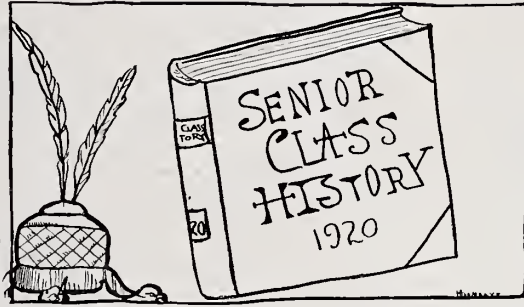 CLASS
TORY
20
SENIOR
CLASS
HISTORY
1920